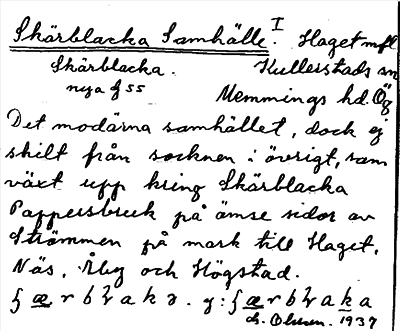 Skärblacka Samhälle. I Haget mfl
Skärblacka. Kullerstads sn
nya § 55
Memmings hd. Ög
Det modärna samhället, dock ej
skilt från socknen i övrigt, som
växt upp kring Skärblacka
Pappersbruk på ömse sidor av
Strömmen på mark till Haget,
Näs, Åby och Högstad.
1937